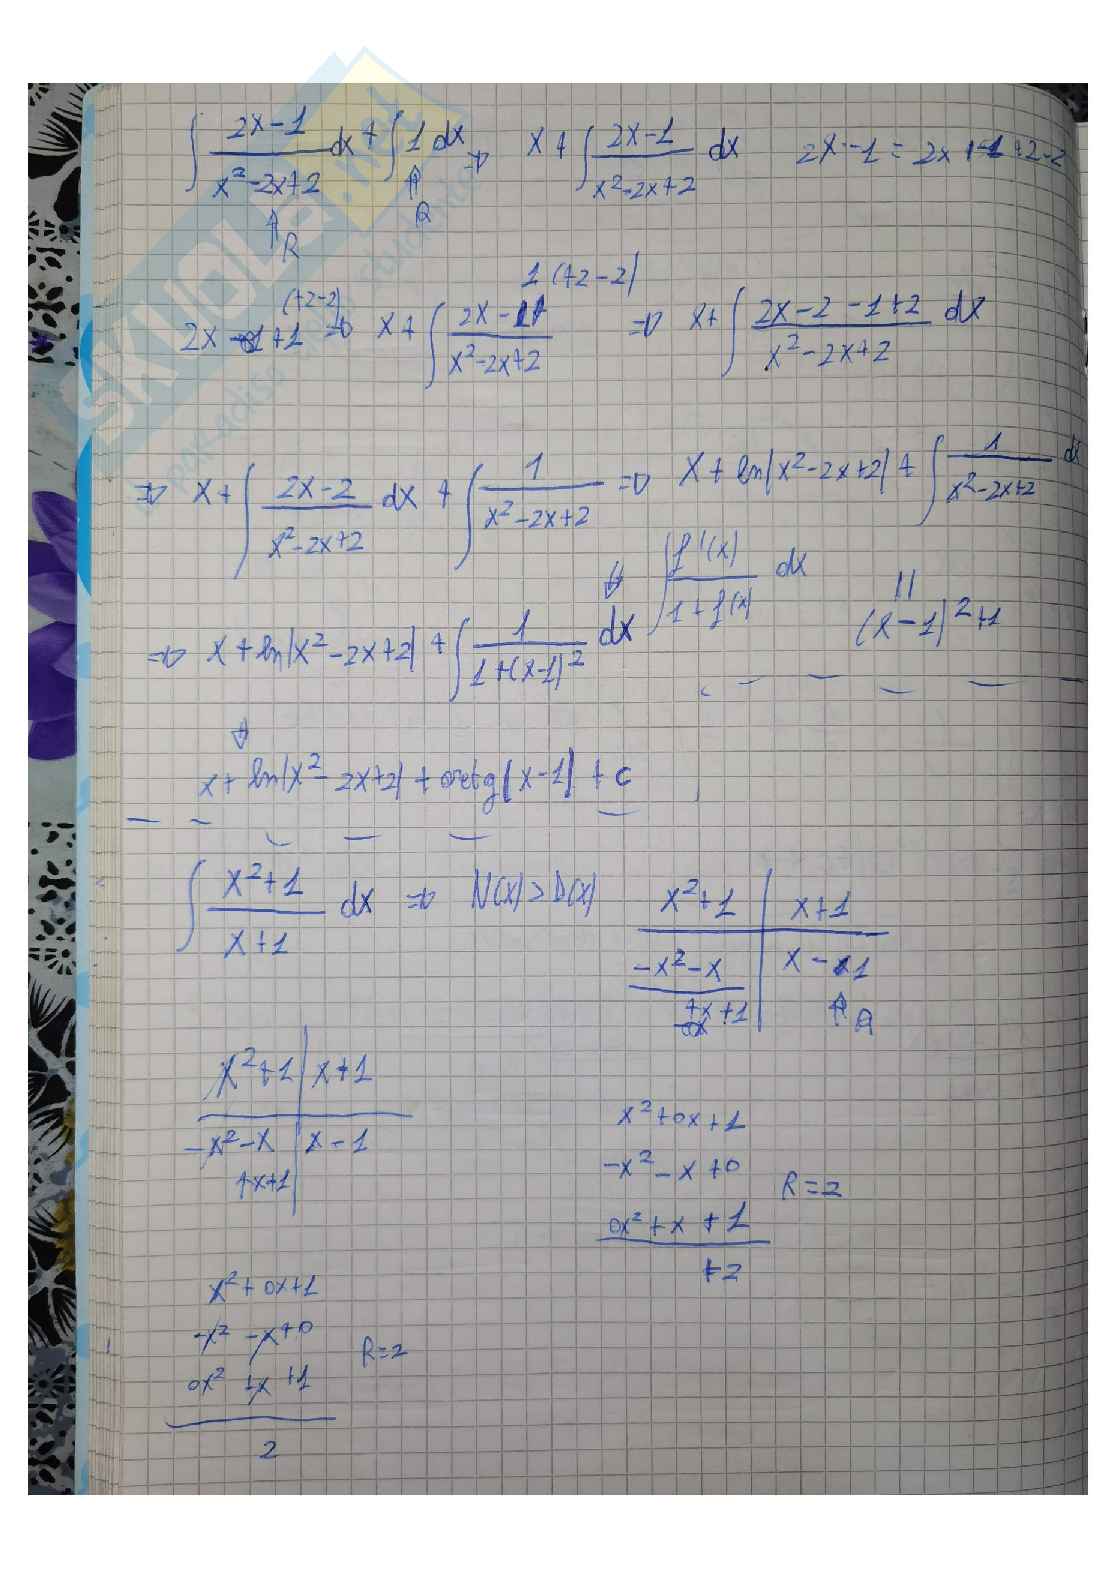 ∫ (2x-1)/(x²-2x+2) dx + ∫ 1 dx ⇒ x + ∫ (2x-1)/(x²-2x+2) dx    2x-1 = 2x -1 +2-2
↑ R    ↑ Q
(+2-2)    1 (+2-2)
2x ⇒ x + ∫ (2x-1)/(x²-2x+2) ⇒ x + ∫ (2x-2-1+2)/(x²-2x+2) dx
⇒ x + ∫ (2x-2)/(x²-2x+2) dx + ∫ 1/(x²-2x+2) ⇒ x + ln|x²-2x+2| + ∫ 1/(x²-2x+2) dx
⇓ ∫ f'(x)/(1+f(x)) dx    || (x-1)²+1
⇒ x + ln|x²-2x+2| + ∫ 1/(1+(x-1)²) dx
⇓
x + ln|x²-2x+2| + arctg(x-1) + c
∫ (x²+1)/(x+1) dx ⇒ N(x) > D(x)    x²+1 | x+1
-x²-x | x-1
+x+1    ↑ Q
x²+1 | x+1
-x²-x | x-1
+x+1
x²+0x+1
-x²-x+0
0x²+x+1    R=2
+2
x²+0x+1
-x²-x+0    R=2
0x² +x +1
2
SKUOLA.net